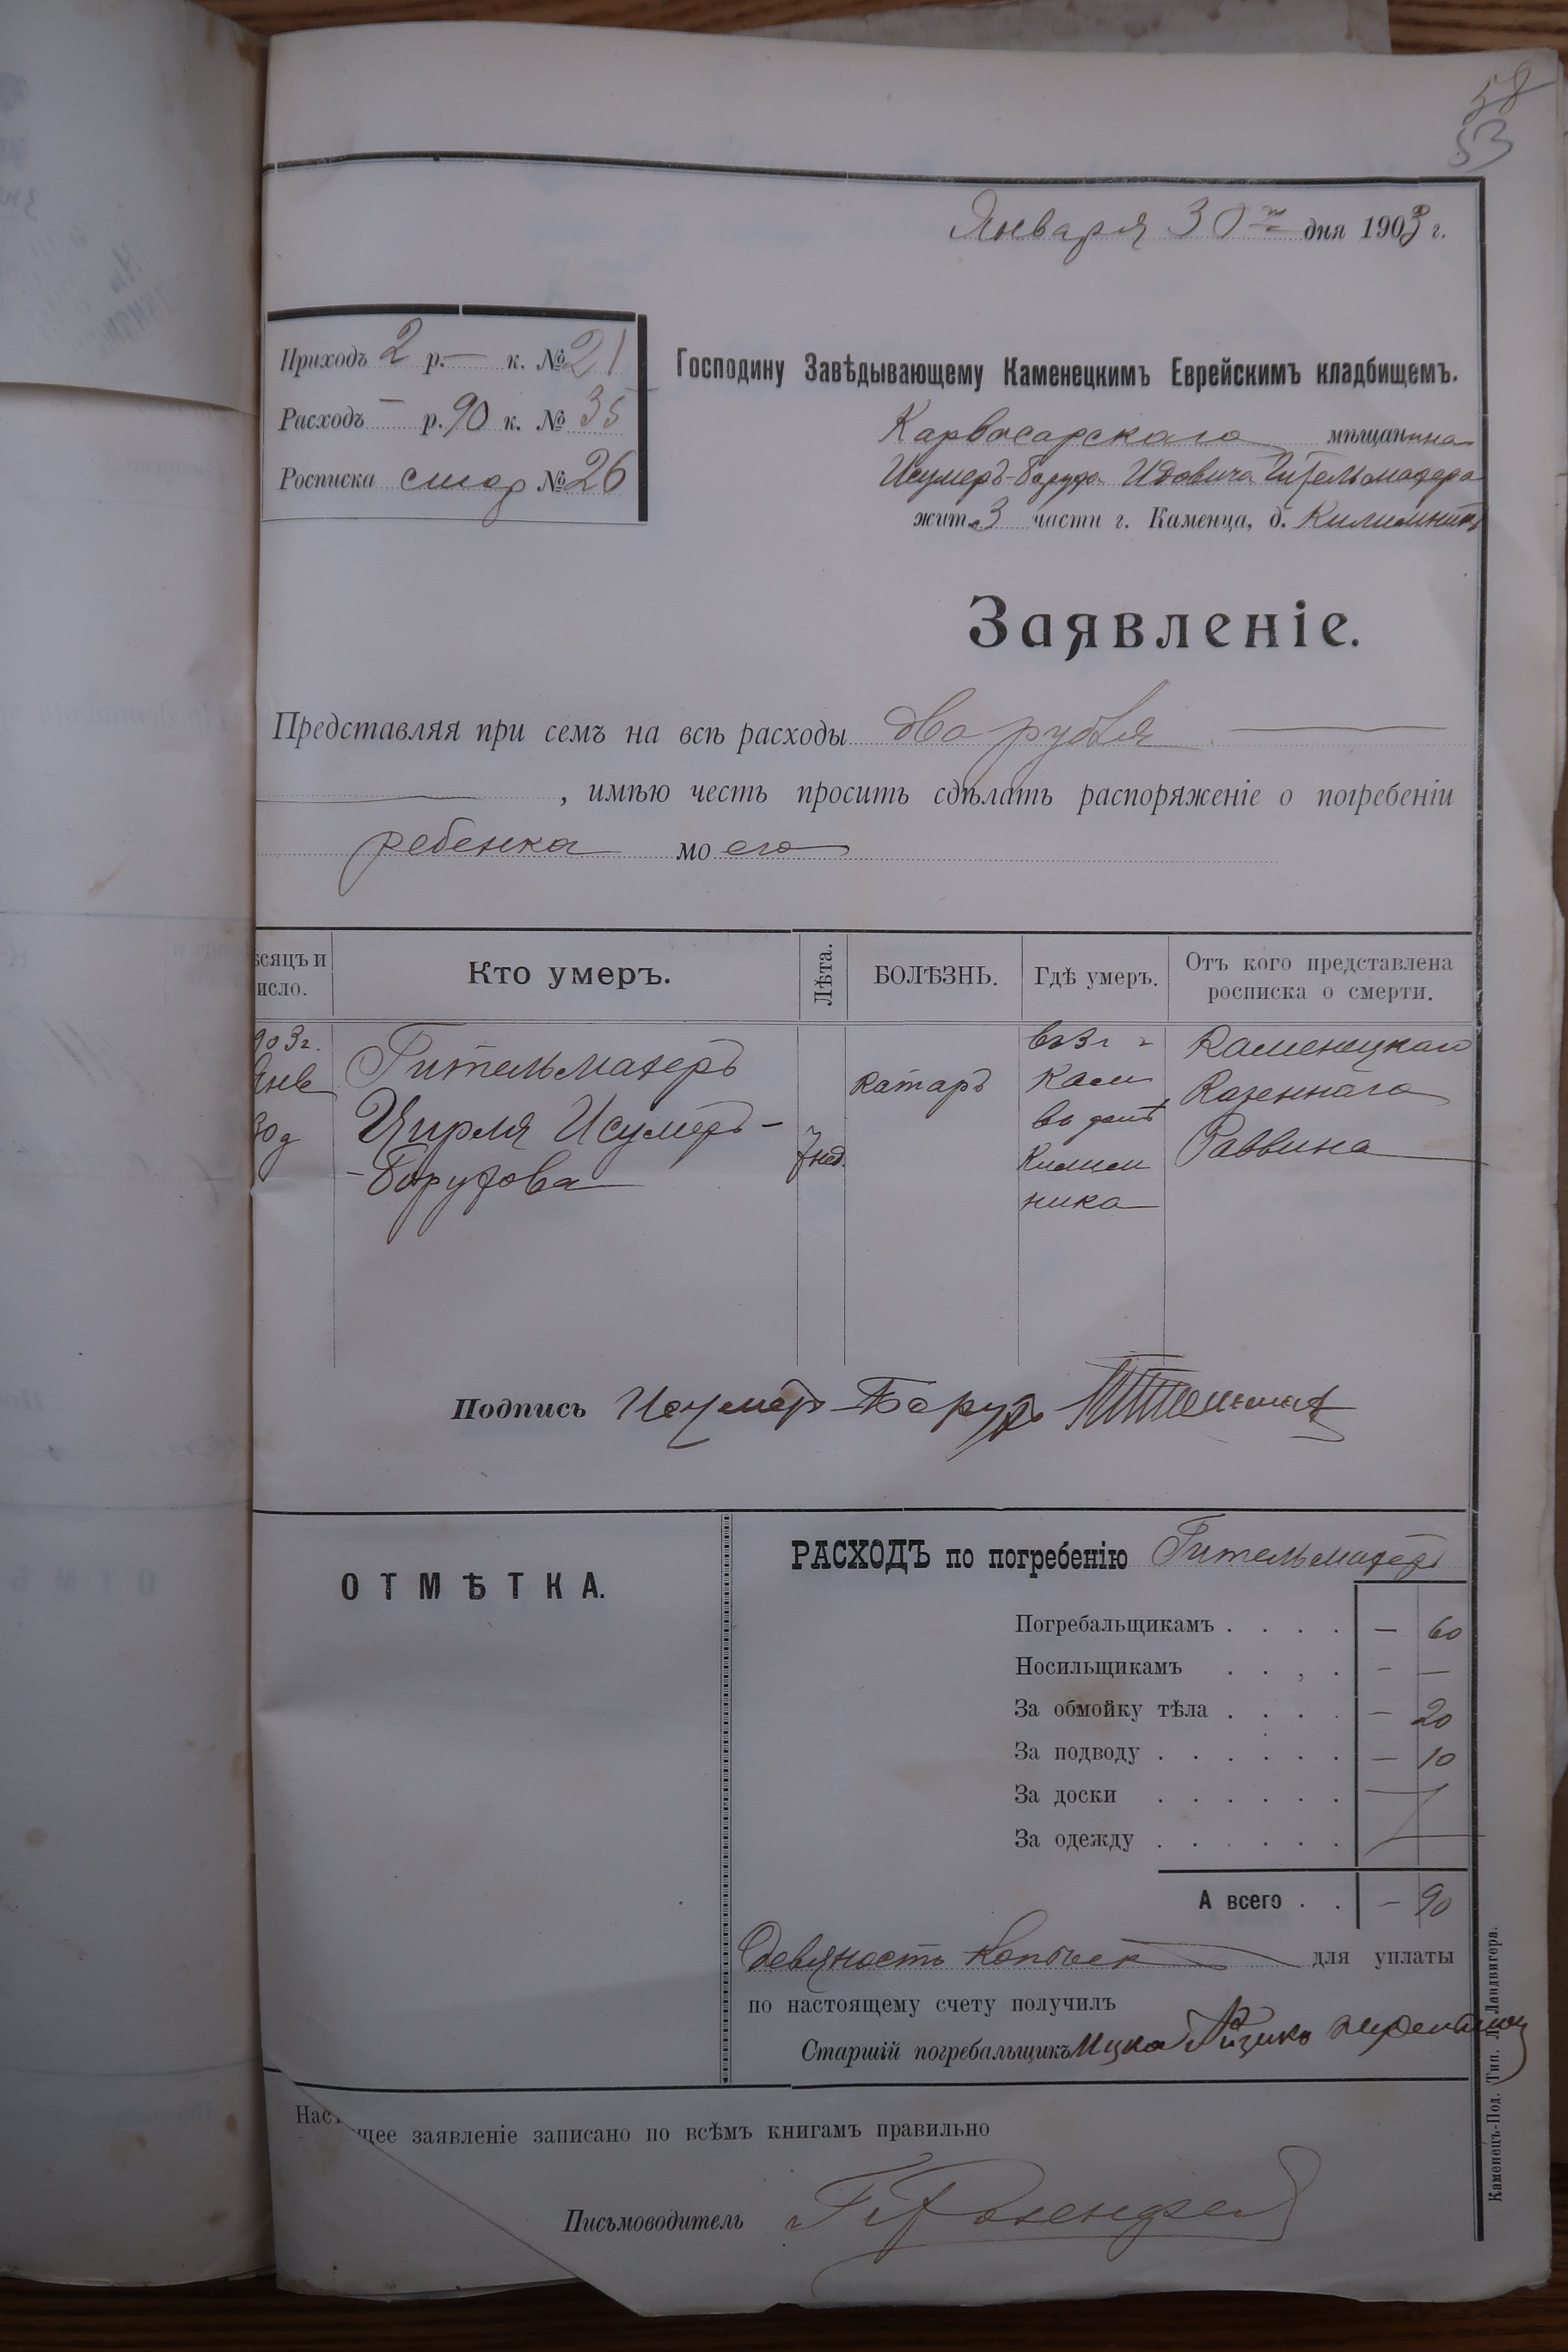 58
53
Января 30го дня 1903 г.
Приходъ 2 р. — к. № 21
Расходъ — р. 90 к. № 35
Росписка № 26
Господину Завѣдывающему Каменецкимъ Еврейскимъ кладбищемъ.
Карвасарскаго мѣщанина
Исумеръ-Боруха Идовича Гительмахера
жит. 3 части г. Каменца, д. Килимника
Заявленіе.
Представляя при семъ на всѣ расходы два рубля
, имѣю честь просить сдѣлать распоряженіе о погребеніи
ребенка моего
ѣсяцъ и исло.
Кто умеръ.
Лѣта.
БОЛѢЗНЬ.
Гдѣ умеръ.
Отъ кого представлена росписка о смерти.
903 г.
Янв
30 д
Гительмахеръ
Цирля Исумеръ-
-Борухова
7 нед.
катаръ
въ 3 ч г
Кам
въ домѣ
Килим
ника
Каменецкаго
Казеннаго
Раввина
Подпись Исумер Борухъ
ОТМѢТКА.
РАСХОДЪ по погребенію Гительмахеръ
Погребальщикамъ . . . . — 60
Носильщикамъ . . , . — —
За обмойку тѣла . . . . — 20
За подводу . . . . . . — 10
За доски . . . . . .
За одежду . . . . . .
А всего . . — 90
Девяносто копѣек для уплаты
по настоящему счету получилъ
Старшій погребальщикъ Ицко
Нас щее заявленіе записано по всѣмъ книгамъ правильно
Письмоводитель Розенфел
Каменецъ-Под. Тип. Л. Ландвигера.